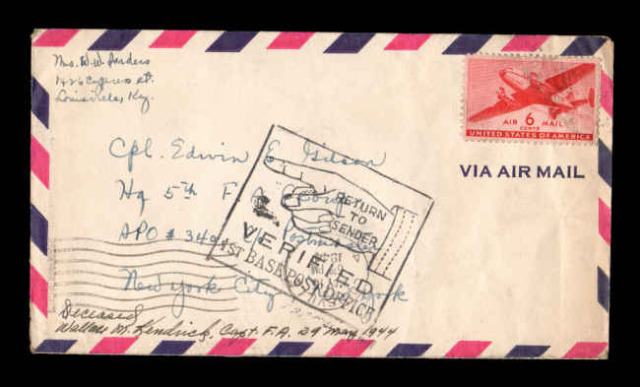 Mrs. W. W. Sanders
1426 Cypress St.
Louisville, Ky.
AIR 6 MAIL
CENTS
UNITED STATES OF AMERICA
VIA AIR MAIL
Cpl. Edwin E. Gibson
Hq 5th F A Group
APO # 349
New York City York
RETURN
TO
SENDER
VERIFIED
1ST BASE POST OFFICE
Deceased
Wallace M. Kendrick, Capt. F.A. 29 May 1944